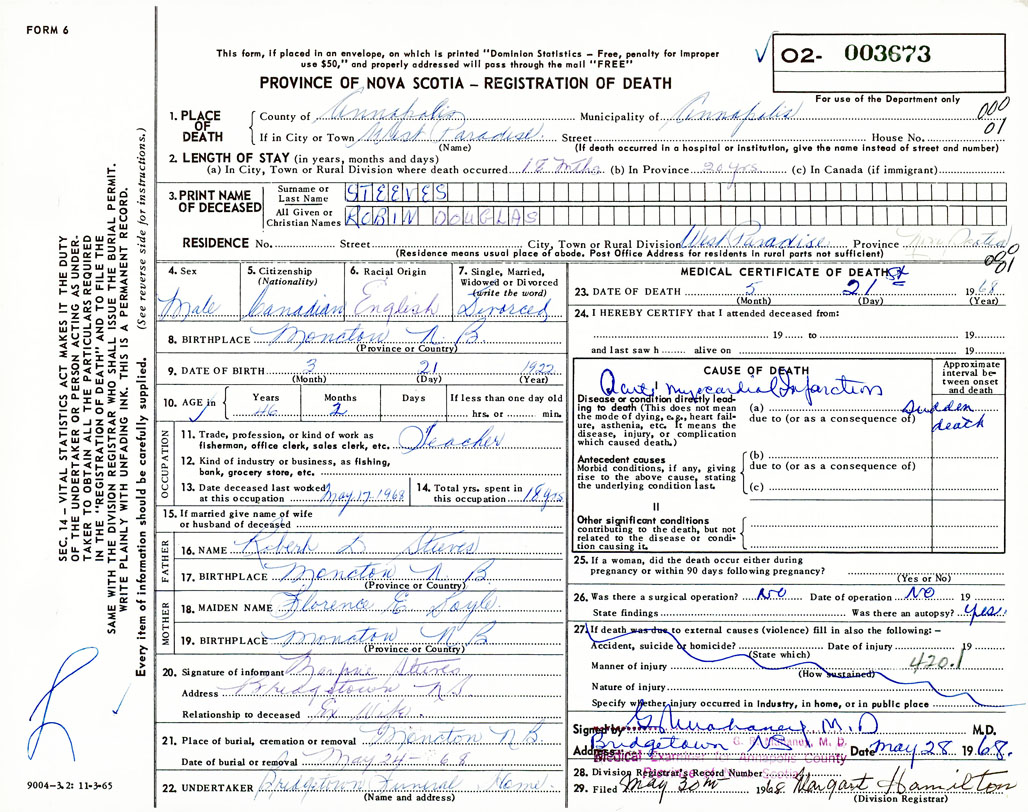 FORM 6
This form, if placed in an envelope, on which is printed "Dominion Statistics – Free, penalty for improper
use $50," and properly addressed will pass through the mail "FREE"
PROVINCE OF NOVA SCOTIA – REGISTRATION OF DEATH
O2- 003673
For use of the Department only
000
01
1. PLACE OF DEATH
County of Annapolis Municipality of Annapolis
If in City or Town West Paradise Street House No.
(Name) (If death occurred in a hospital or institution, give the name instead of street and number)
2. LENGTH OF STAY (in years, months and days)
(a) In City, Town or Rural Division where death occurred 18 Mths (b) In Province 20 yrs (c) In Canada (if immigrant)
3. PRINT NAME OF DECEASED
Surname or Last Name STEEVES
All Given or Christian Names ROBIN DOUGLAS
RESIDENCE No. Street City, Town or Rural Division West Paradise Province Nova Scotia
(Residence means usual place of abode. Post Office Address for residents in rural parts not sufficient)
000
01
4. Sex
Male
5. Citizenship
(Nationality)
Canadian
6. Racial Origin
English
7. Single, Married,
Widowed or Divorced
(write the word)
Divorced
8. BIRTHPLACE Moncton N. B.
(Province or Country)
9. DATE OF BIRTH 3 21 1922
(Month) (Day) (Year)
10. AGE in Years Months Days If less than one day old
46 2 hrs. or min.
OCCUPATION
11. Trade, profession, or kind of work as
fisherman, office clerk, sales clerk, etc. Teacher
12. Kind of industry or business, as fishing,
bank, grocery store, etc.
13. Date deceased last worked
at this occupation May 17-1968
14. Total yrs. spent in
this occupation 18 yrs
15. If married give name of wife
or husband of deceased
FATHER
16. NAME Robert D Steeves
17. BIRTHPLACE Moncton N. B
(Province or Country)
MOTHER
18. MAIDEN NAME Florence E
19. BIRTHPLACE Moncton N B
(Province or Country)
20. Signature of informant Steeves
Address Bridgetown NS
Relationship to deceased Ex Wife.
21. Place of burial, cremation or removal Moncton N B.
Date of burial or removal May 24 - 68
22. UNDERTAKER Bridgetown Funeral Home
(Name and address)
MEDICAL CERTIFICATE OF DEATH
23. DATE OF DEATH 5 21st 1968
(Month) (Day) (Year)
24. I HEREBY CERTIFY that I attended deceased from:
19 to 19
and last saw h alive on 19
CAUSE OF DEATH
Approximate
interval be-
tween onset
and death
I
Acute myocardial Infarction
Disease or condition directly lead-
ing to death (This does not mean
the mode of dying, e.g., heart fail-
ure, asthenia, etc. It means the
disease, injury, or complication
which caused death.)
(a)
due to (or as a consequence of)
Sudden
death
Antecedent causes
Morbid conditions, if any, giving
rise to the above cause, stating
the underlying condition last.
(b)
due to (or as a consequence of)
(c)
II
Other significant conditions
contributing to the death, but not
related to the disease or condi-
tion causing it.
25. If a woman, did the death occur either during
pregnancy or within 90 days following pregnancy?
(Yes or No)
26. Was there a surgical operation? NO Date of operation NO 19
State findings Was there an autopsy? yes.
27. If death was due to external causes (violence) fill in also the following: –
Accident, suicide or homicide? Date of injury 19
(State which)
420.1
Manner of injury
(How sustained)
Nature of injury
Specify whether injury occurred in Industry, in home, or in public place
Signed by M.D M.D.
Address Bridgetown NS Date May 28 1968.
Medical Examiner Annapolis County
28. Division Registrar's Record Number
29. Filed May 30th 1968 Margart Hamilton
(Division Registrar)
SEC. 14 – VITAL STATISTICS ACT MAKES IT THE DUTY
OF THE UNDERTAKER OR PERSON ACTING AS UNDER-
TAKER TO OBTAIN ALL THE PARTICULARS REQUIRED
IN THE "REGISTRATION OF DEATH" AND TO FILE THE
SAME WITH THE DIVISION REGISTRAR WHO SHALL ISSUE THE BURIAL PERMIT.
WRITE PLAINLY WITH UNFADING INK. THIS IS A PERMANENT RECORD.
Every item of information should be carefully supplied. (See reverse side for instructions.)
9004-3.2: 11-3-65